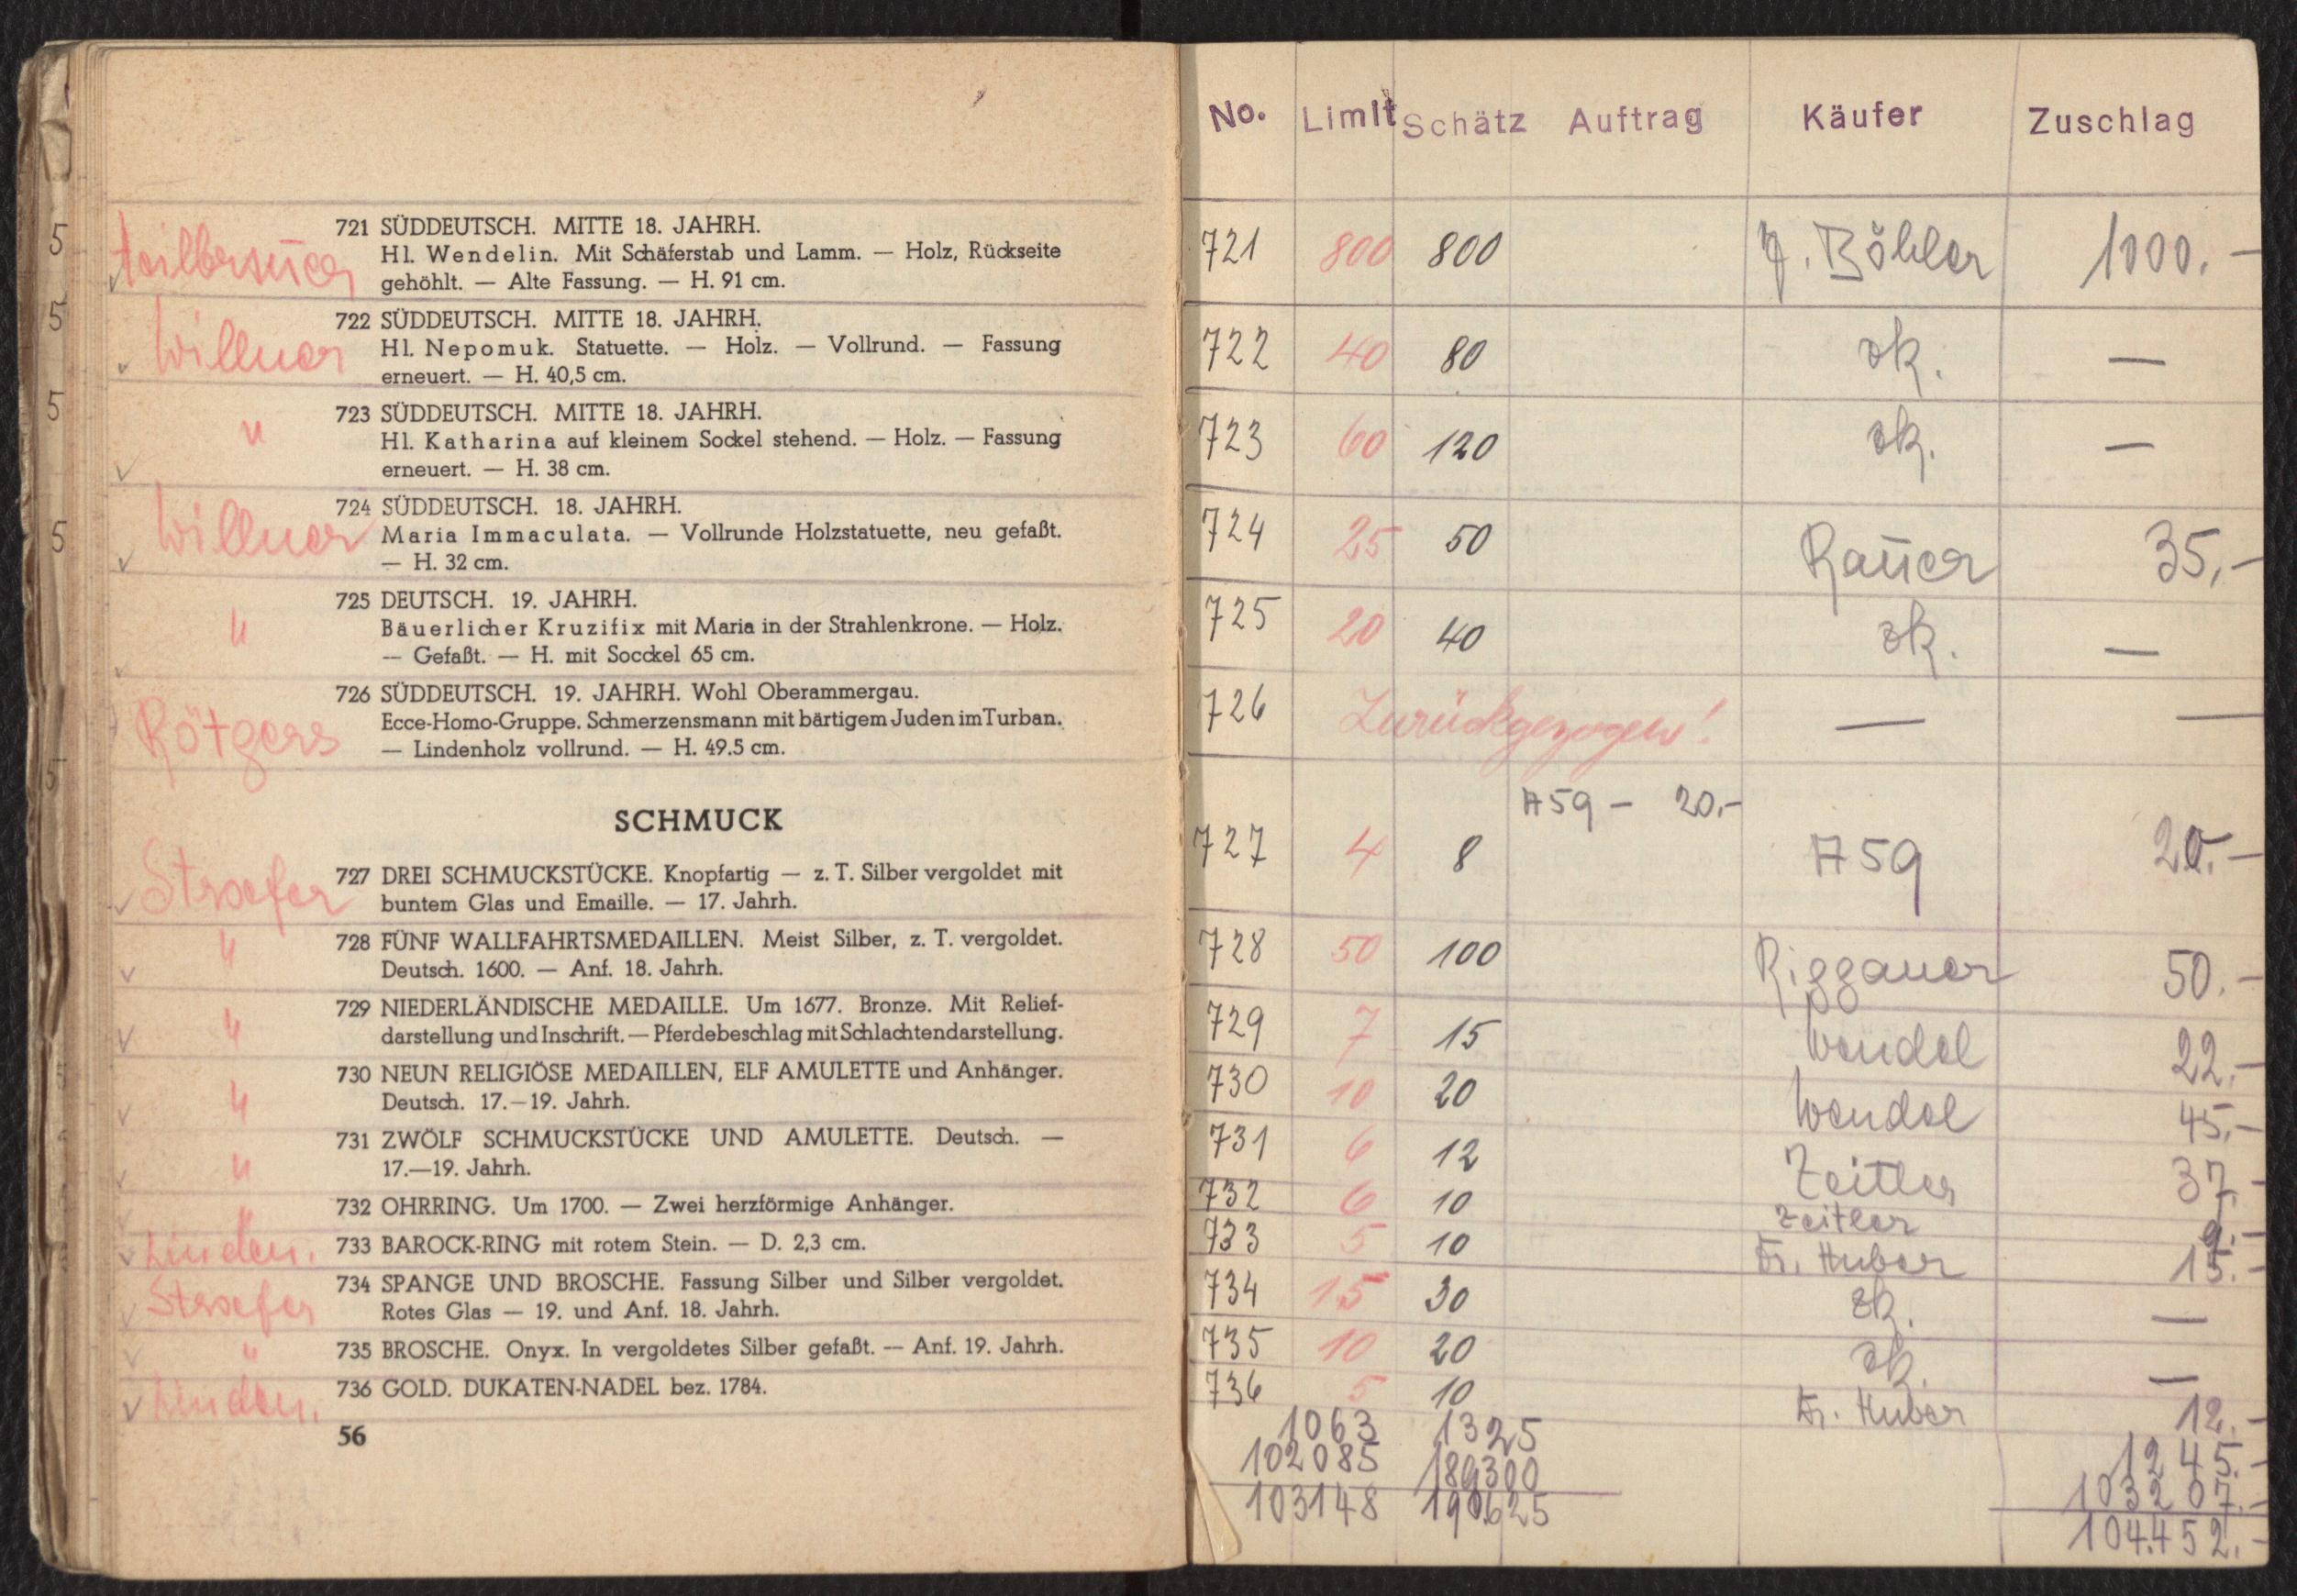 721 SÜDDEUTSCH. MITTE 18. JAHRH.
Hl. Wendelin. Mit Schäferstab und Lamm. — Holz, Rückseite
gehöhlt. — Alte Fassung. — H. 91 cm.
5
Willner
722 SÜDDEUTSCH. MITTE 18. JAHRH.
Hl. Nepomuk. Statuette. — Holz. — Vollrund. — Fassung
erneuert. — H. 40,5 cm.
5
"
723 SÜDDEUTSCH. MITTE 18. JAHRH.
Hl. Katharina auf kleinem Sockel stehend. — Holz. — Fassung
erneuert. — H. 38 cm.
5
Willner
724 SÜDDEUTSCH. 18. JAHRH.
Maria Immaculata. — Vollrunde Holzstatuette, neu gefaßt.
— H. 32 cm.
5
"
725 DEUTSCH. 19. JAHRH.
Bäuerlicher Kruzifix mit Maria in der Strahlenkrone. — Holz.
— Gefaßt. — H. mit Socckel 65 cm.
Rötgers
726 SÜDDEUTSCH. 19. JAHRH. Wohl Oberammergau.
Ecce-Homo-Gruppe. Schmerzensmann mit bärtigem Juden im Turban.
— Lindenholz vollrund. — H. 49.5 cm.
5
SCHMUCK
Stroefer
727 DREI SCHMUCKSTÜCKE. Knopfartig — z. T. Silber vergoldet mit
buntem Glas und Emaille. — 17. Jahrh.
"
728 FÜNF WALLFAHRTSMEDAILLEN. Meist Silber, z. T. vergoldet.
Deutsch. 1600. — Anf. 18. Jahrh.
"
729 NIEDERLÄNDISCHE MEDAILLE. Um 1677. Bronze. Mit Relief-
darstellung und Inschrift. — Pferdebeschlag mit Schlachtendarstellung.
"
730 NEUN RELIGIÖSE MEDAILLEN, ELF AMULETTE und Anhänger.
Deutsch. 17.—19. Jahrh.
"
731 ZWÖLF SCHMUCKSTÜCKE UND AMULETTE. Deutsch. —
17.—19. Jahrh.
" 732 OHRRING. Um 1700. — Zwei herzförmige Anhänger.
Linden. 733 BAROCK-RING mit rotem Stein. — D. 2,3 cm.
Stroefer
734 SPANGE UND BROSCHE. Fassung Silber und Silber vergoldet.
Rotes Glas — 19. und Anf. 18. Jahrh.
" 735 BROSCHE. Onyx. In vergoldetes Silber gefaßt. — Anf. 19. Jahrh.
Linden. 736 GOLD. DUKATEN-NADEL bez. 1784.
56
No. Limit Schätz Auftrag Käufer Zuschlag
721 800 800 J. Böhler 1000.—
722 40 80 zk. —
723 60 120 zk. —
724 25 50 Rauer 35,—
725 20 40 zk. —
726 Zurückgezogen! — —
A59 — 20,—
727 4 8 A59 20.—
728 50 100 Riggauer 50.—
729 7 15 Wendel 22,—
730 10 20 Wendel 45,—
731 6 12 Zeitler 37,—
732 6 10 Zeitler 9.—
733 5 10 Fr. Huber 15.—
734 15 30 zk. —
735 10 20 zk. —
736 5 10 Fr. Huber 12.—
1063 1325 1245.—
102085 189300 103207.—
103148 190625 104.452.—